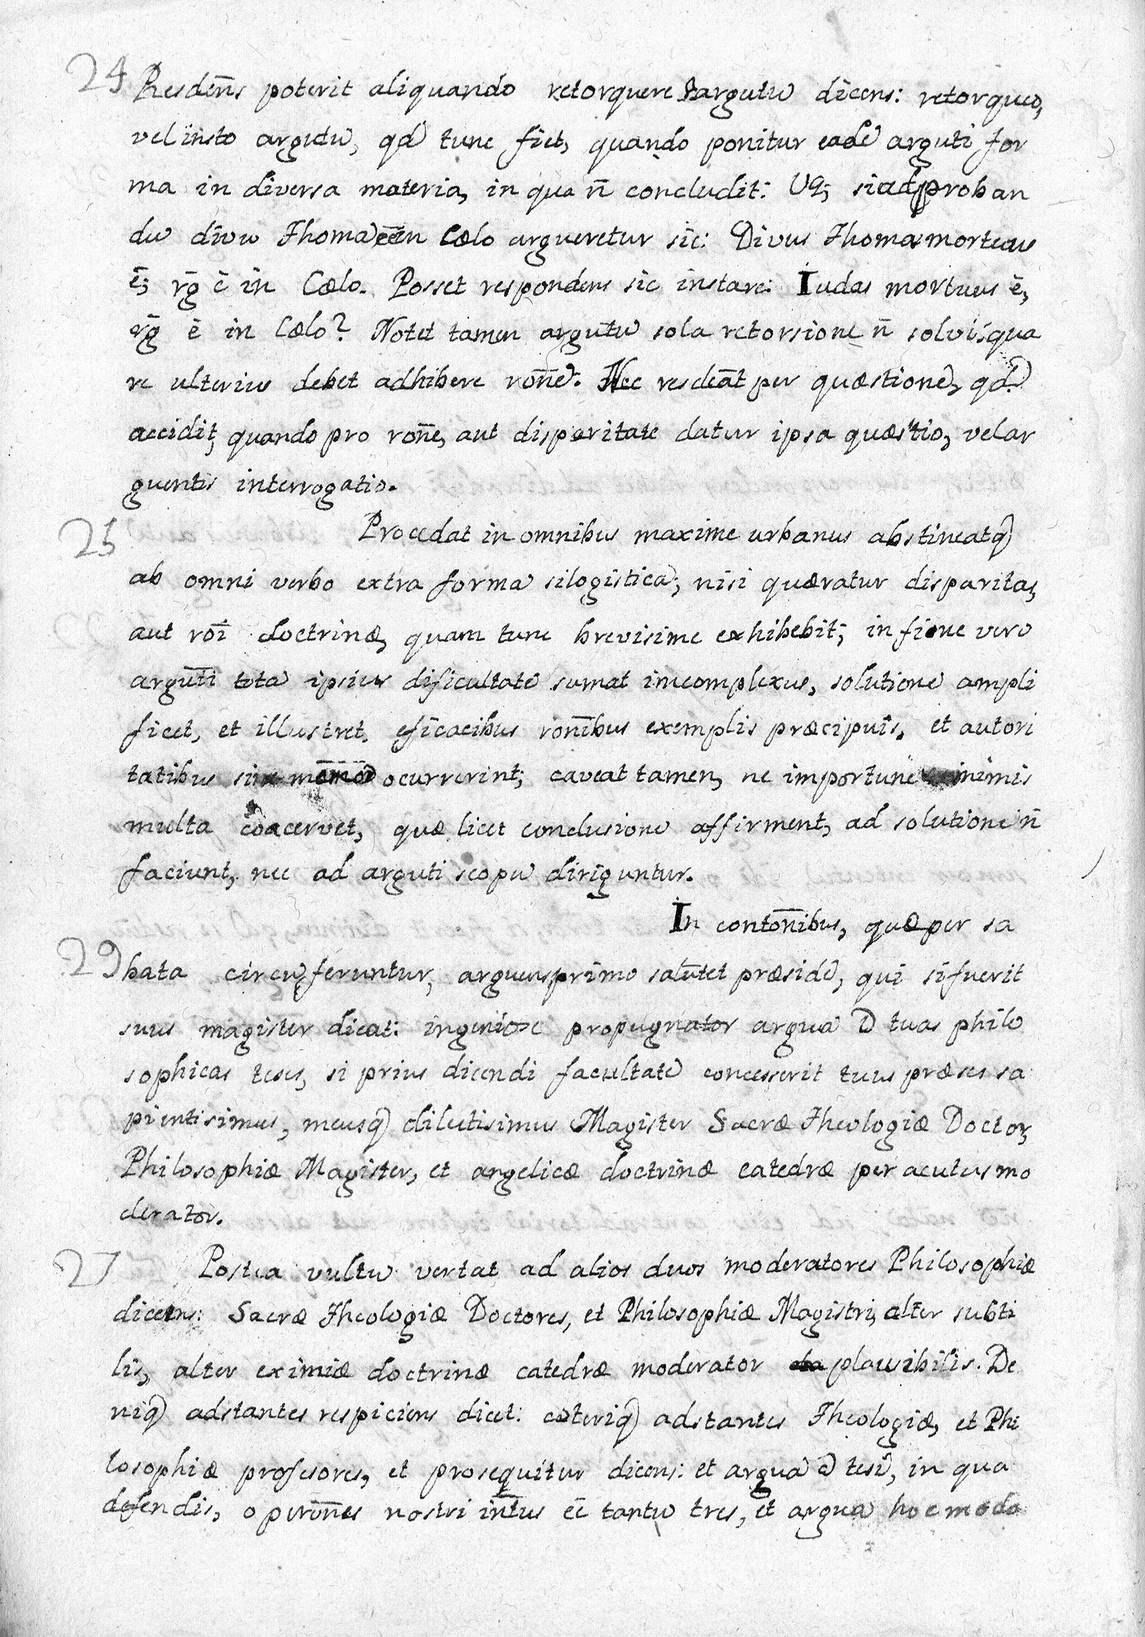 24 Resdēns poterit aliquando retorquere argutū dicens: retorqueo,
vel insto argutū, qd̄ tunc fiet, quando ponitur eadē arguti for
ma in diversa materia, in qua n̄ concludit: Vg; si ad proban
dū divū Thomā eē in Cœlo argueretur sic: Divus Thomas mortuus
ē; rḡ ē in Cœlo. Posset respondens sic instare: Iudas mortuus ē,
rḡ ē in Cœlo? Notet tamen argutū sola retorsione n̄ solvi; qua
re ulterius debet adhibere ronē. Nec resdeāt per quæstionē, qd̄
accidit, quando pro ronē, aut disparitate datur ipsa quæstio, vel ar
guentis interrogatio.
25 Procedat in omnibus maxime urbanus abstineatq)
ab omni verbo extra formā silogisticā; nisi quæratur disparitas,
aut roī doctrinæ, quam tunc brevisime exhibebit; in fine vero
argūti tota ipsius dificultatē sumat imcomplexus, solutionē ampli
ficet, et illustret, eficacibus ronībus exemplis præcipuis, et autori
tatibus ocurrerint; caveat tamen, ne importune nimis
multa coacervet, quæ licet conclusionē affirment, ad solutionē n̄
faciunt, nec ad arguti scopū diriguntur.
In contonībus, quæ per sa
29 bata circūferuntur, arguens primo salutet præsidē, qui si fuerit
suus magister dicat: ingeniose propugnator arguā D tuas philo
sophicas teses, si prius dicendi facultatē concesserit tuus præses sa
pientisimus, meusq) dilutisimus Magister Sacræ Theologiæ Doctor,
Philosophiæ Magister, et angelicæ doctrinæ catedræ per acutus mo
derator.
27 Postea vultū vertat ad alios duos moderatores Philosophiæ
dicens: Sacræ Theologiæ Doctores, et Philosophiæ Magistri, alter subti
lis, alter eximiæ doctrinæ catedræ moderator plausibilis. De
niq) adstantes respiciens dicet: cæteriq) adstantes Theologiæ, et Phi
losophiæ profesores, et prosequitur dicens: et arguā D tesī, in qua
defendis, operonēs nostri intūs eē tantū tres, et arguā hoc modo